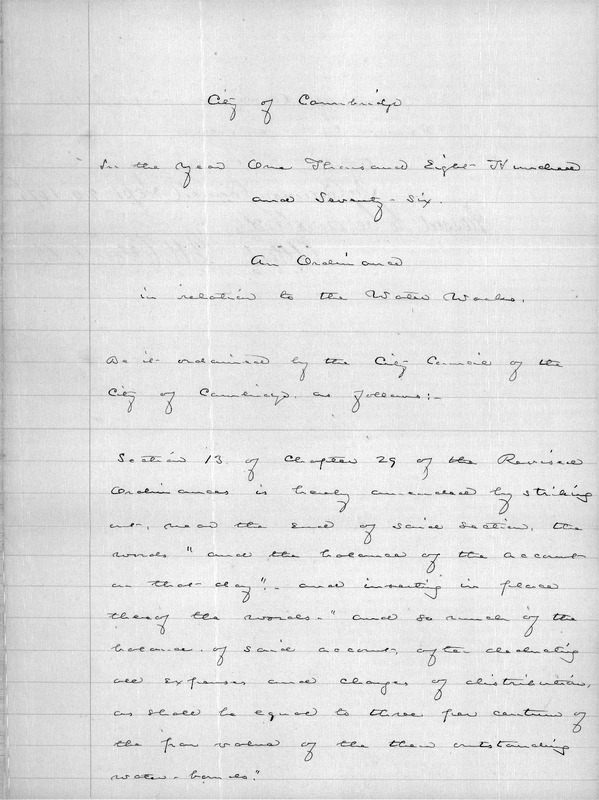 City of Cambridge
In the year One Thousand Eight Hundred
and Seventy-Six.
An Ordinance
in relation to the Water Works.
Be it ordained by the City Council of the
City of Cambridge, as follows:-
Section 13 of Chapter 29 of the Revised
Ordinances is hereby amended by striking
out, near the end of said section, the
words "and the balance of the account
on that day"- and inserting in place
thereof the words- "and so much of the
balance of said account, after deducting
all expenses and charges of distribution,
as shall be equal to three per centum of
the par value of the then outstanding
water-bonds."